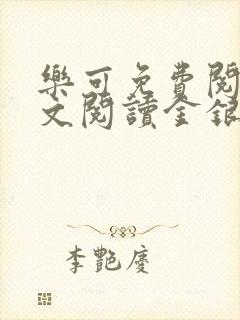 樂可免費閱
文閱讀金銀
李艷慶